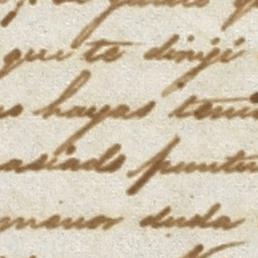 que te dirijí
hayas teni
asiado puntu
menor duda